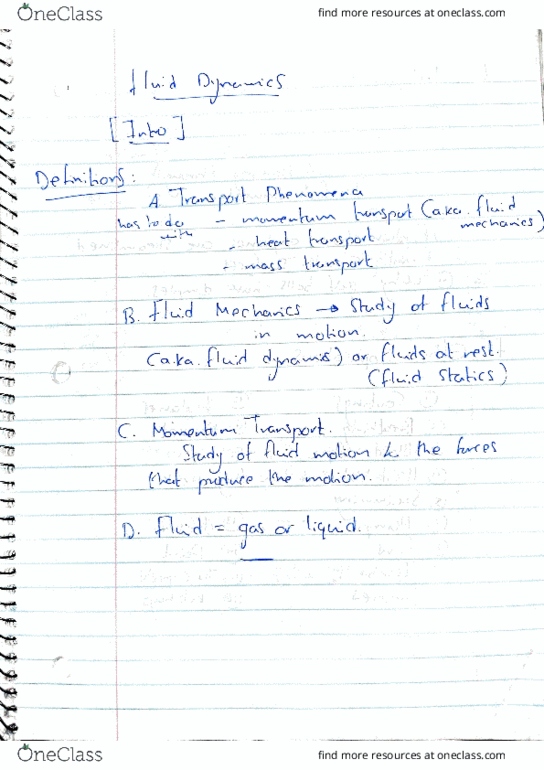 OneClass
find more resources at oneclass.com
Fluid Dynamics
[Intro]
Definitions:
A. Transport Phenomena
has to do with - momentum transport (aka. fluid mechanics)
- heat transport
- mass transport
B. Fluid Mechanics → Study of fluids
in motion.
(aka. fluid dynamis) or fluids at rest.
(fluid statics)
C. Momentum Transport.
Study of fluid motion & the forces
that produce the motion.
D. Fluid = gas or liquid.
OneClass
find more resources at oneclass.com